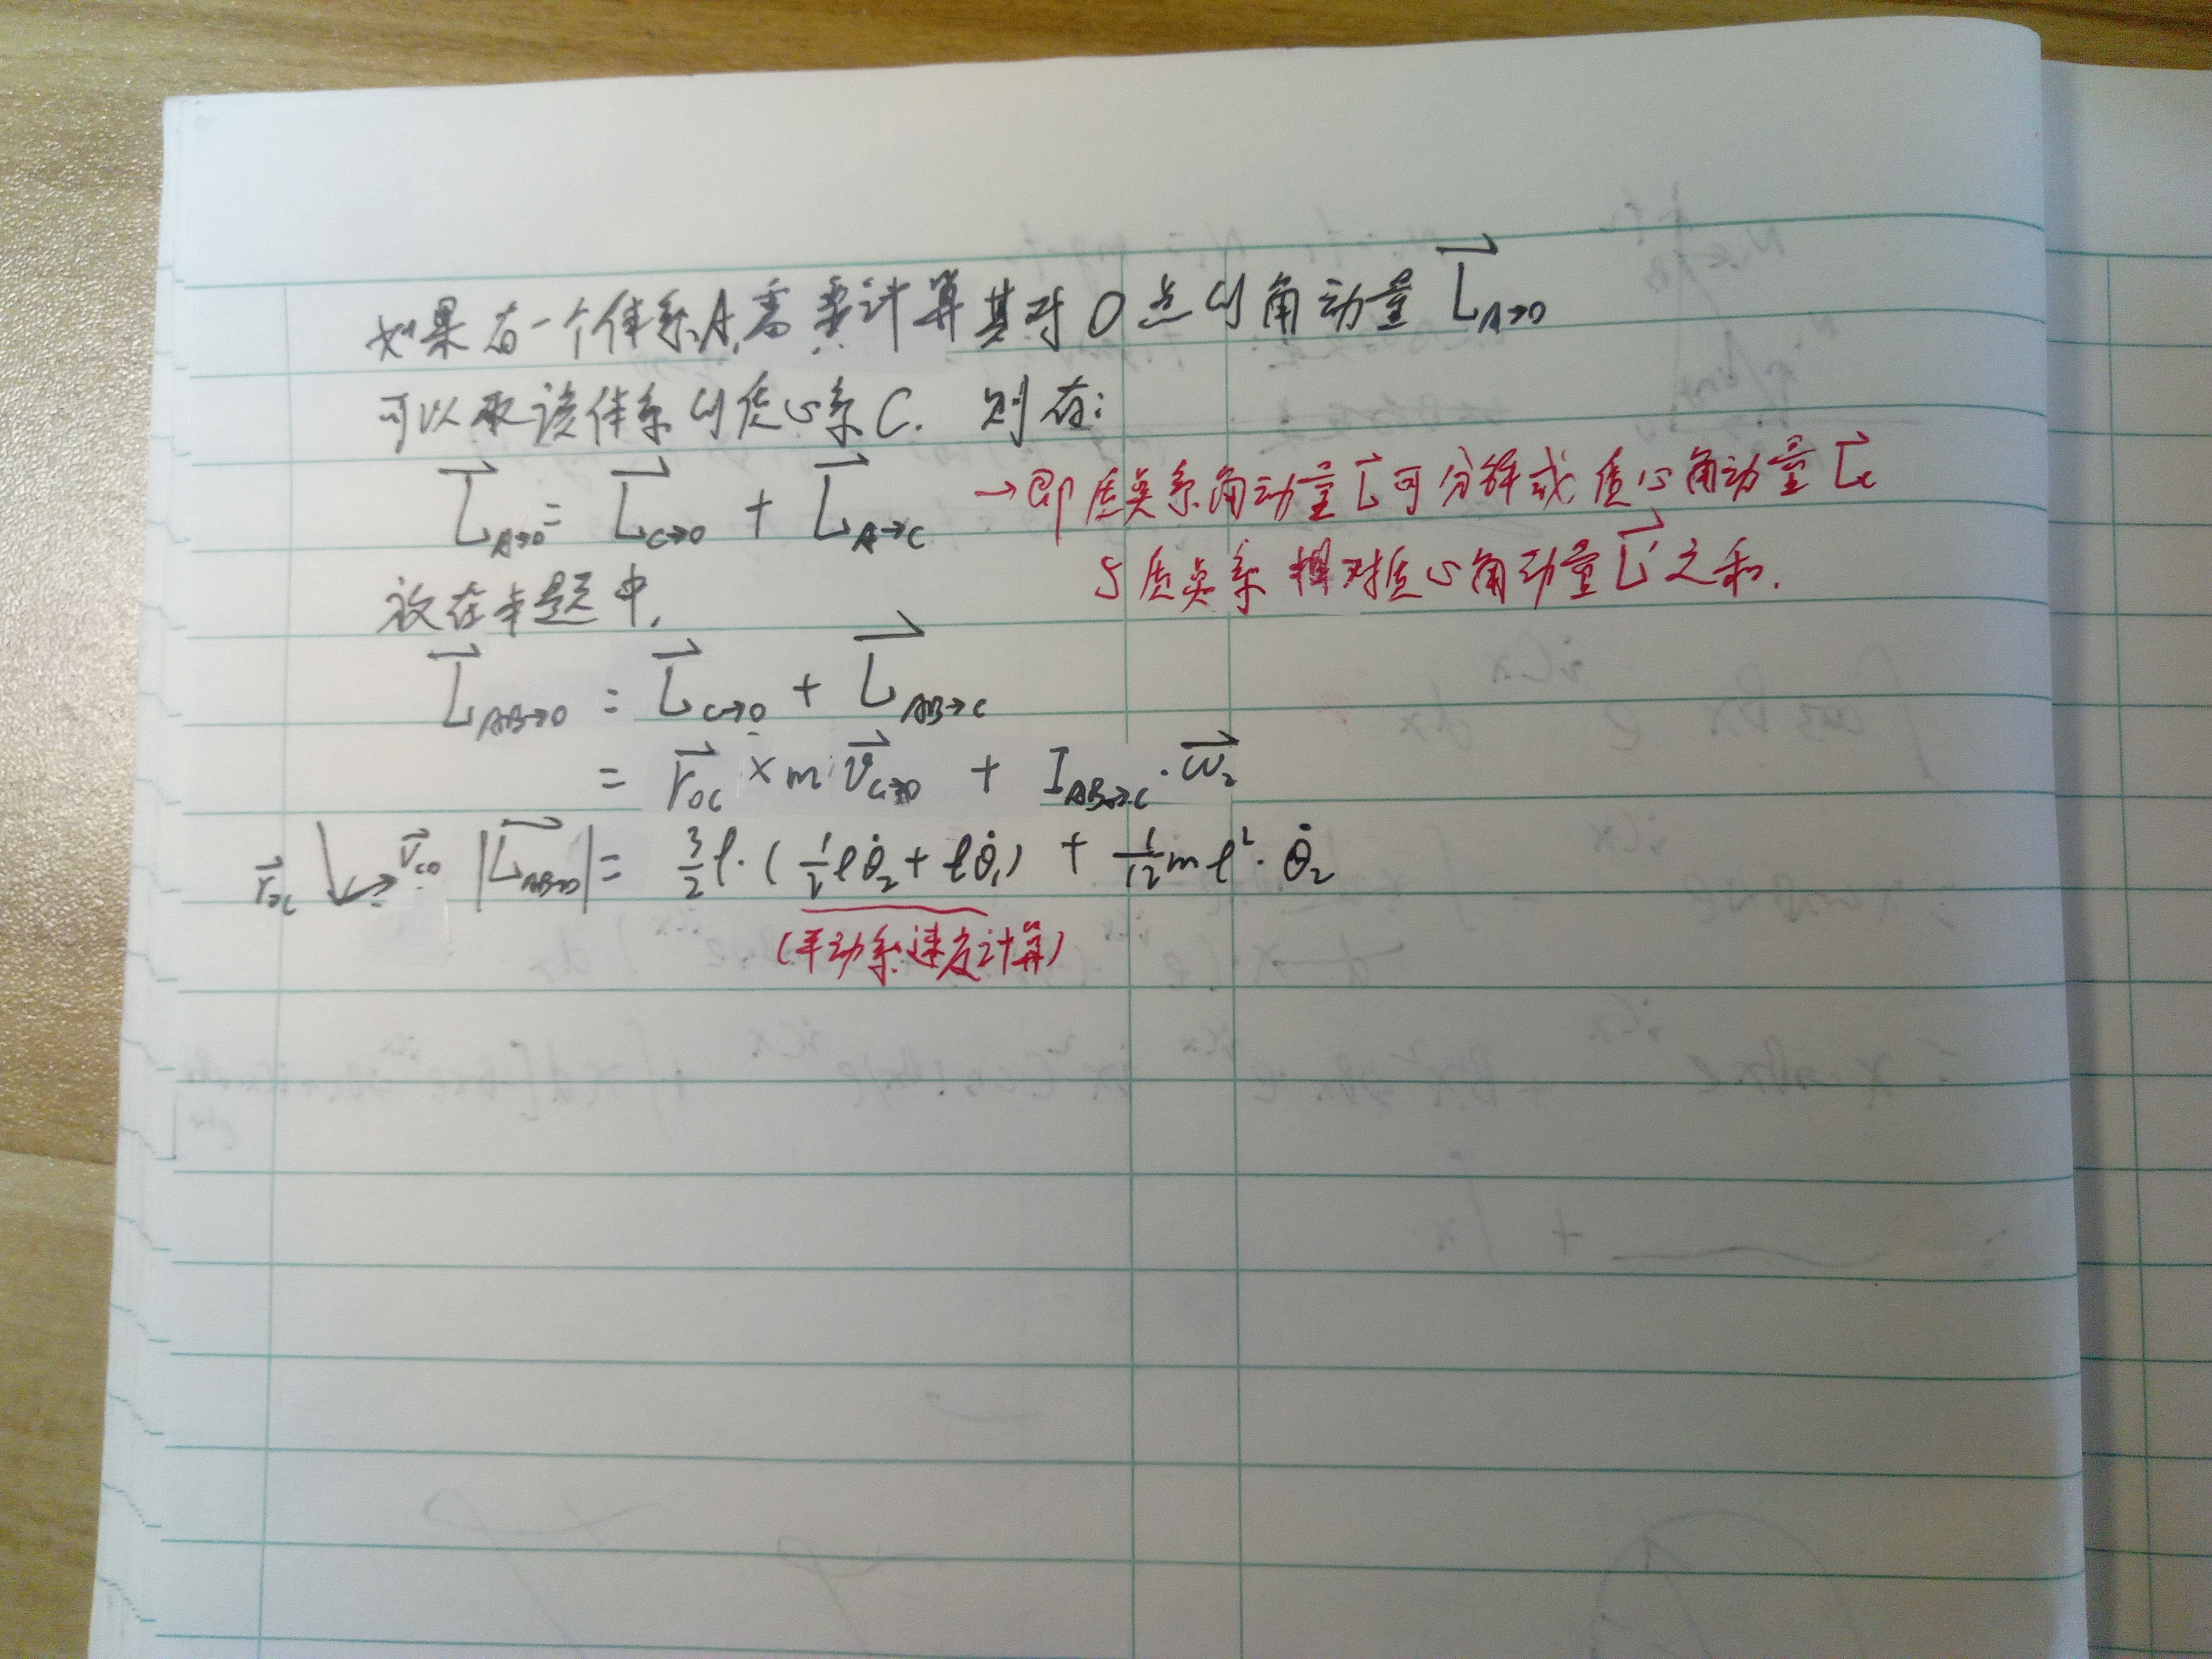 如果有一个体系A,需要计算其对O点的角动量 $\vec{L}_{A→O}$
可以取该体系的质心系C. 则有:
$\vec{L}_{A→O} = \vec{L}_{C→O} + \vec{L}_{A→C}$
→即质点系角动量$\vec{L}$可分解成质心角动量$\vec{L}_c$
与质点系相对质心角动量$\vec{L}'$之和.
放在本题中,
$\vec{L}_{AB→O} = \vec{L}_{C→O} + \vec{L}_{AB→C}$
$= \vec{r}_{OC} × m\vec{v}_{C→O} + I_{AB→C} · \vec{ω}_2$
$\vec{r}_{OC}$ $\vec{v}_{CO}$ $|\vec{L}_{AB→O}| = \frac{3}{2}l·(\frac{1}{2}l\dot{θ}_2 + l\dot{θ}_1) + \frac{1}{12}ml^2·\dot{θ}_2$
(平动系速度计算)